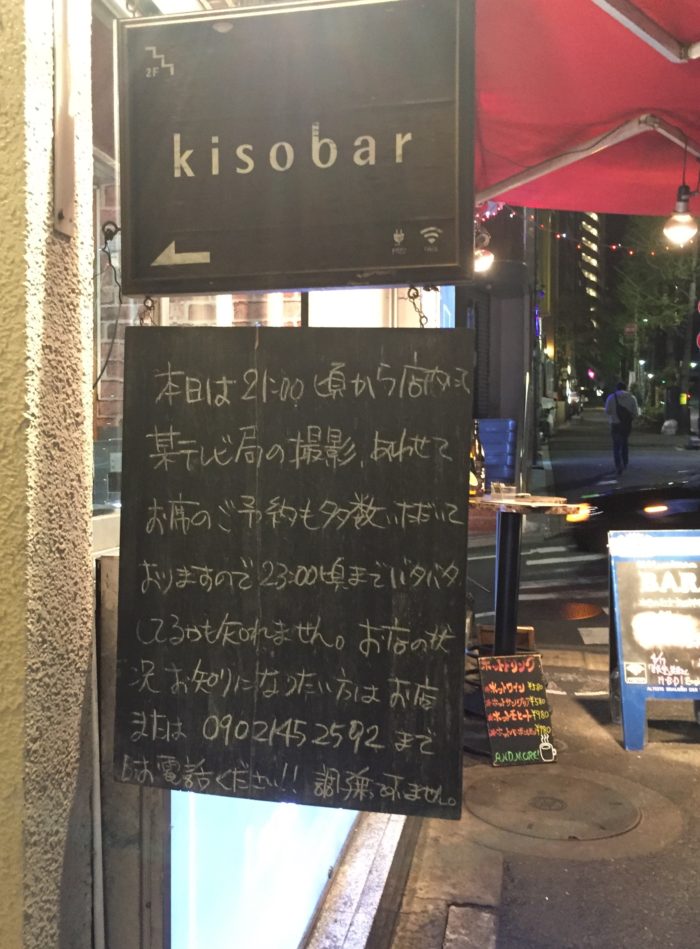 2F
kisobar
本日は21:00頃から店内にて
某テレビ局の撮影、あわせて
お席のご予約も多数いただいて
おりますので23:00頃までバタバタ
してるかも知れません。お店の状
況お知りになりたい方はお店
または 09021452592 まで
お電話ください!!
ホットドリンク
ホットワイン
ホットサングリア ¥580
ホットモヒート ¥980
AND MORE!
BAR